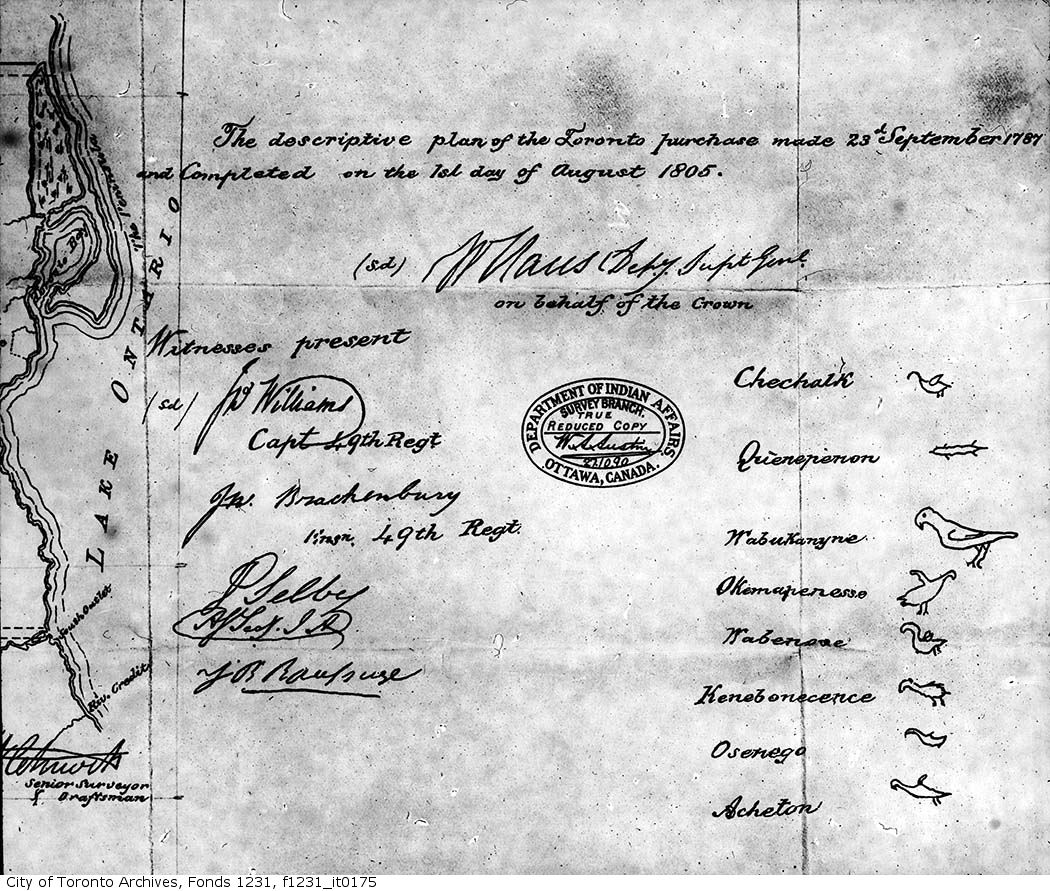 The descriptive plan of the Toronto purchase made 23d September 1787
and Completed on the 1st day of August 1805.
(sd) W Claus Depy Supt Genl.
on behalf of the Crown
Witnesses present
(sd) Jno Williams
Capt 49th Regt
Jno. Brackenbury
Ensn. 49th Regt.
P Selby
J B Rousseau
DEPARTMENT OF INDIAN AFFAIRS.
SURVEY BRANCH.
TRUE
REDUCED COPY
W. A. Austin
OTTAWA, CANADA.
Chechalk
Queneperon
Wabukanyne
Okemapenesse
Wabenose
Kenebonecence
Osenego
Acheton
The Peninsula
Bay
LAKE ONTARIO
South Outlet
Riv. Credit
Senior Surveyor
& Draftsman
City of Toronto Archives, Fonds 1231, f1231_it0175